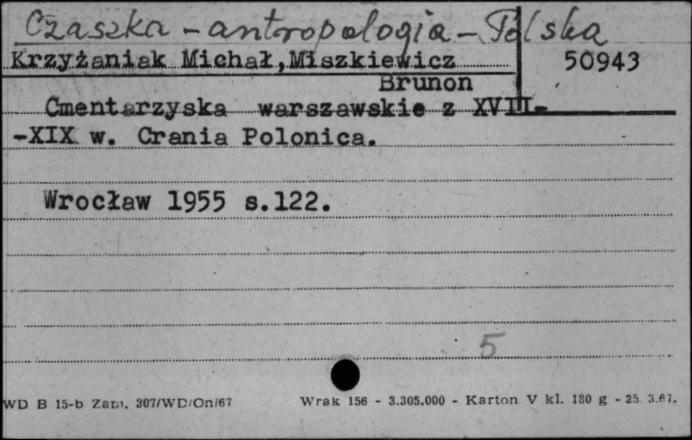 Czaszka - antropologia - Polska
Krzyżaniak Michał,Miszkiewicz 50943
Brunon
Cmentarzyska warszawskie z XVIII-
-XIX w. Crania Polonica.
Wrocław 1955 s.122.
5
WD B 15-b Zam. 307/WD/On/67 Wrak 156 - 3.305.000 - Karton V kl. 180 g - 25. 3.67.